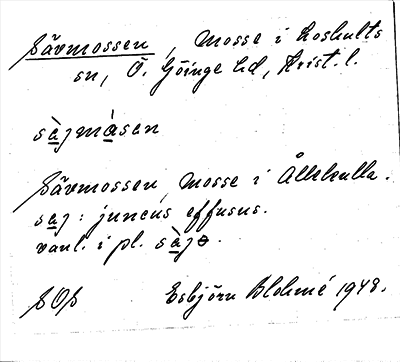 Sävmossen, Mosse i Loshults
sn, Ö. Göinge hd, Krist. l.
sàjmàsen
Sävmossen, Mosse i Ållskulla.
saj: juncus effusus.
vanl. i pl. sàjə.
SOf Esbjörn Blohmé 1948.